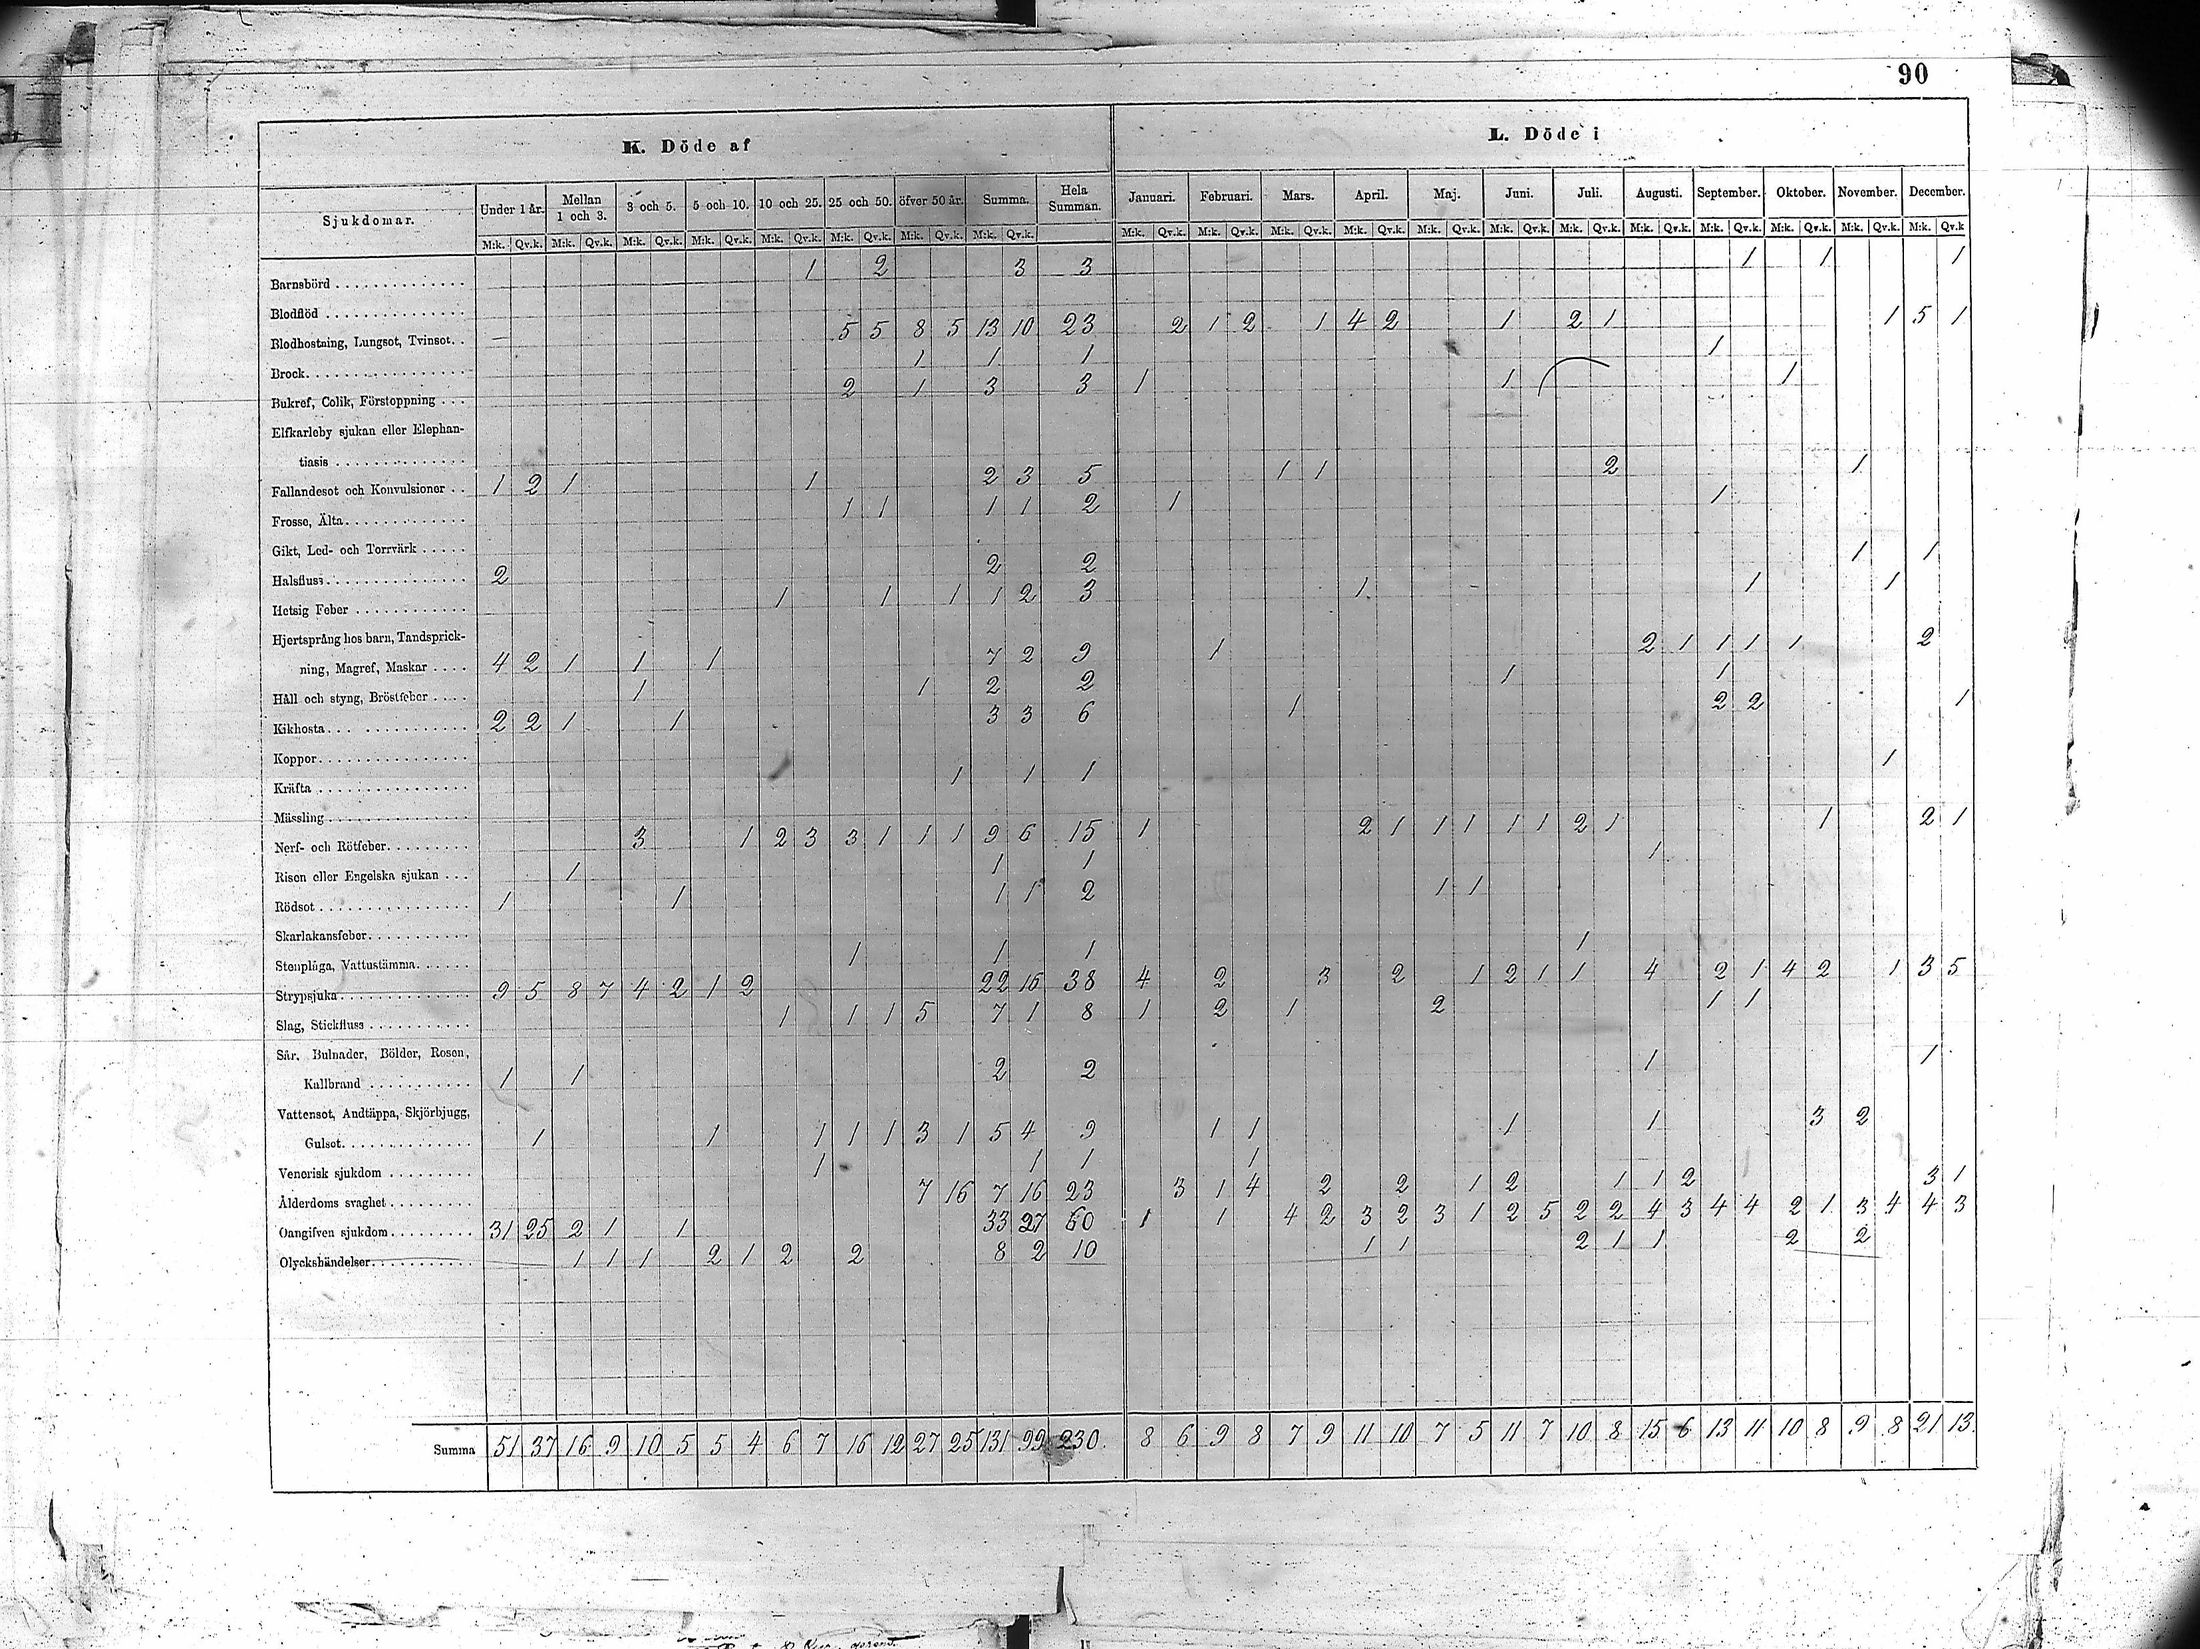 90
K. Döde af
L. Döde i
Sjukdomar. Under 1 år. Mellan 1 och 3. 3 och 5. 5 och 10. 10 och 25. 25 och 50. öfver 50 år. Summa. Hela Summan. Januari. Februari. Mars. April. Maj. Juni. Juli. Augusti. September. Oktober. November. December.
M:k. Qv.k. M:k. Qv.k. M:k. Qv.k. M:k. Qv.k. M:k. Qv.k. M:k. Qv.k. M:k. Qv.k. M:k. Qv.k. M:k. Qv.k. M:k. Qv.k. M:k. Qv.k. M:k. Qv.k. M:k. Qv.k. M:k. Qv.k. M:k. Qv.k. M:k. Qv.k. M:k. Qv.k. M:k. Qv.k. M:k. Qv.k. M:k. Qv.k
Barnsbörd 1 2 3 3 1 1 1
Blodflöd
Blodhostning, Lungsot, Tvinsot. 5 5 8 5 13 10 23 2 1 2 1 4 2 1 2 1 1 5 1
Brock 1 1 1 1
Bukref, Colik, Förstoppning 2 1 3 3 1 1 1
Elfkarleby sjukan eller Elephan-
tiasis
Fallandesot och Konvulsioner 1 2 1 1 2 3 5 1 1 2 1
Frosse, Älta 1 1 1 1 2 1 1
Gikt, Led- och Torrvärk
Halsfluss 2 2 2 1 1
Hetsig Feber 1 1 1 1 2 3 1 1 1
Hjertsprång hos barn, Tandsprick-
ning, Magref, Maskar 4 2 1 1 1 7 2 9 1 2 1 1 1 1 2
Håll och styng, Bröstfeber 1 1 2 2 1 1
Kikhosta 2 2 1 1 3 3 6 1 2 2 1
Koppor
Kräfta 1 1 1 1
Mässling
Nerf- och Rötfeber 3 1 2 3 3 1 1 1 9 6 15 1 2 1 1 1 1 1 2 1 1 2 1
Risen eller Engelska sjukan 1 1 1 1
Rödsot 1 1 1 1 2 1 1
Skarlakansfeber
Stenplåga, Vattustämma 1 1 1 1
Strypsjuka 9 5 8 7 4 2 1 2 22 16 38 4 2 3 2 1 2 1 1 4 2 1 4 2 1 3 5
Slag, Stickfluss 1 1 1 5 7 1 8 1 2 1 2 1 1
Sår, Bulnader, Bölder, Rosen,
Kallbrand 1 1 2 2 1 1
Vattensot, Andtäppa, Skjörbjugg,
Gulsot 1 1 1 1 1 3 1 5 4 9 1 1 1 1 3 2
Venerisk sjukdom 1 1 1 1
Ålderdoms svaghet 7 16 7 16 23 3 1 4 2 2 1 2 1 1 2 3 1
Oangifven sjukdom 31 25 2 1 1 33 27 60 1 1 4 2 3 2 3 1 2 5 2 2 4 3 4 4 2 1 3 4 4 3
Olyckshändelser 1 1 1 2 1 2 2 8 2 10 1 1 2 1 1 2 2
Summa 51 37 16 9 10 5 5 4 6 7 16 12 27 25 131 99 230. 8 6 9 8 7 9 11 10 7 5 11 7 10 8 15 6 13 11 10 8 9 8 21 13.